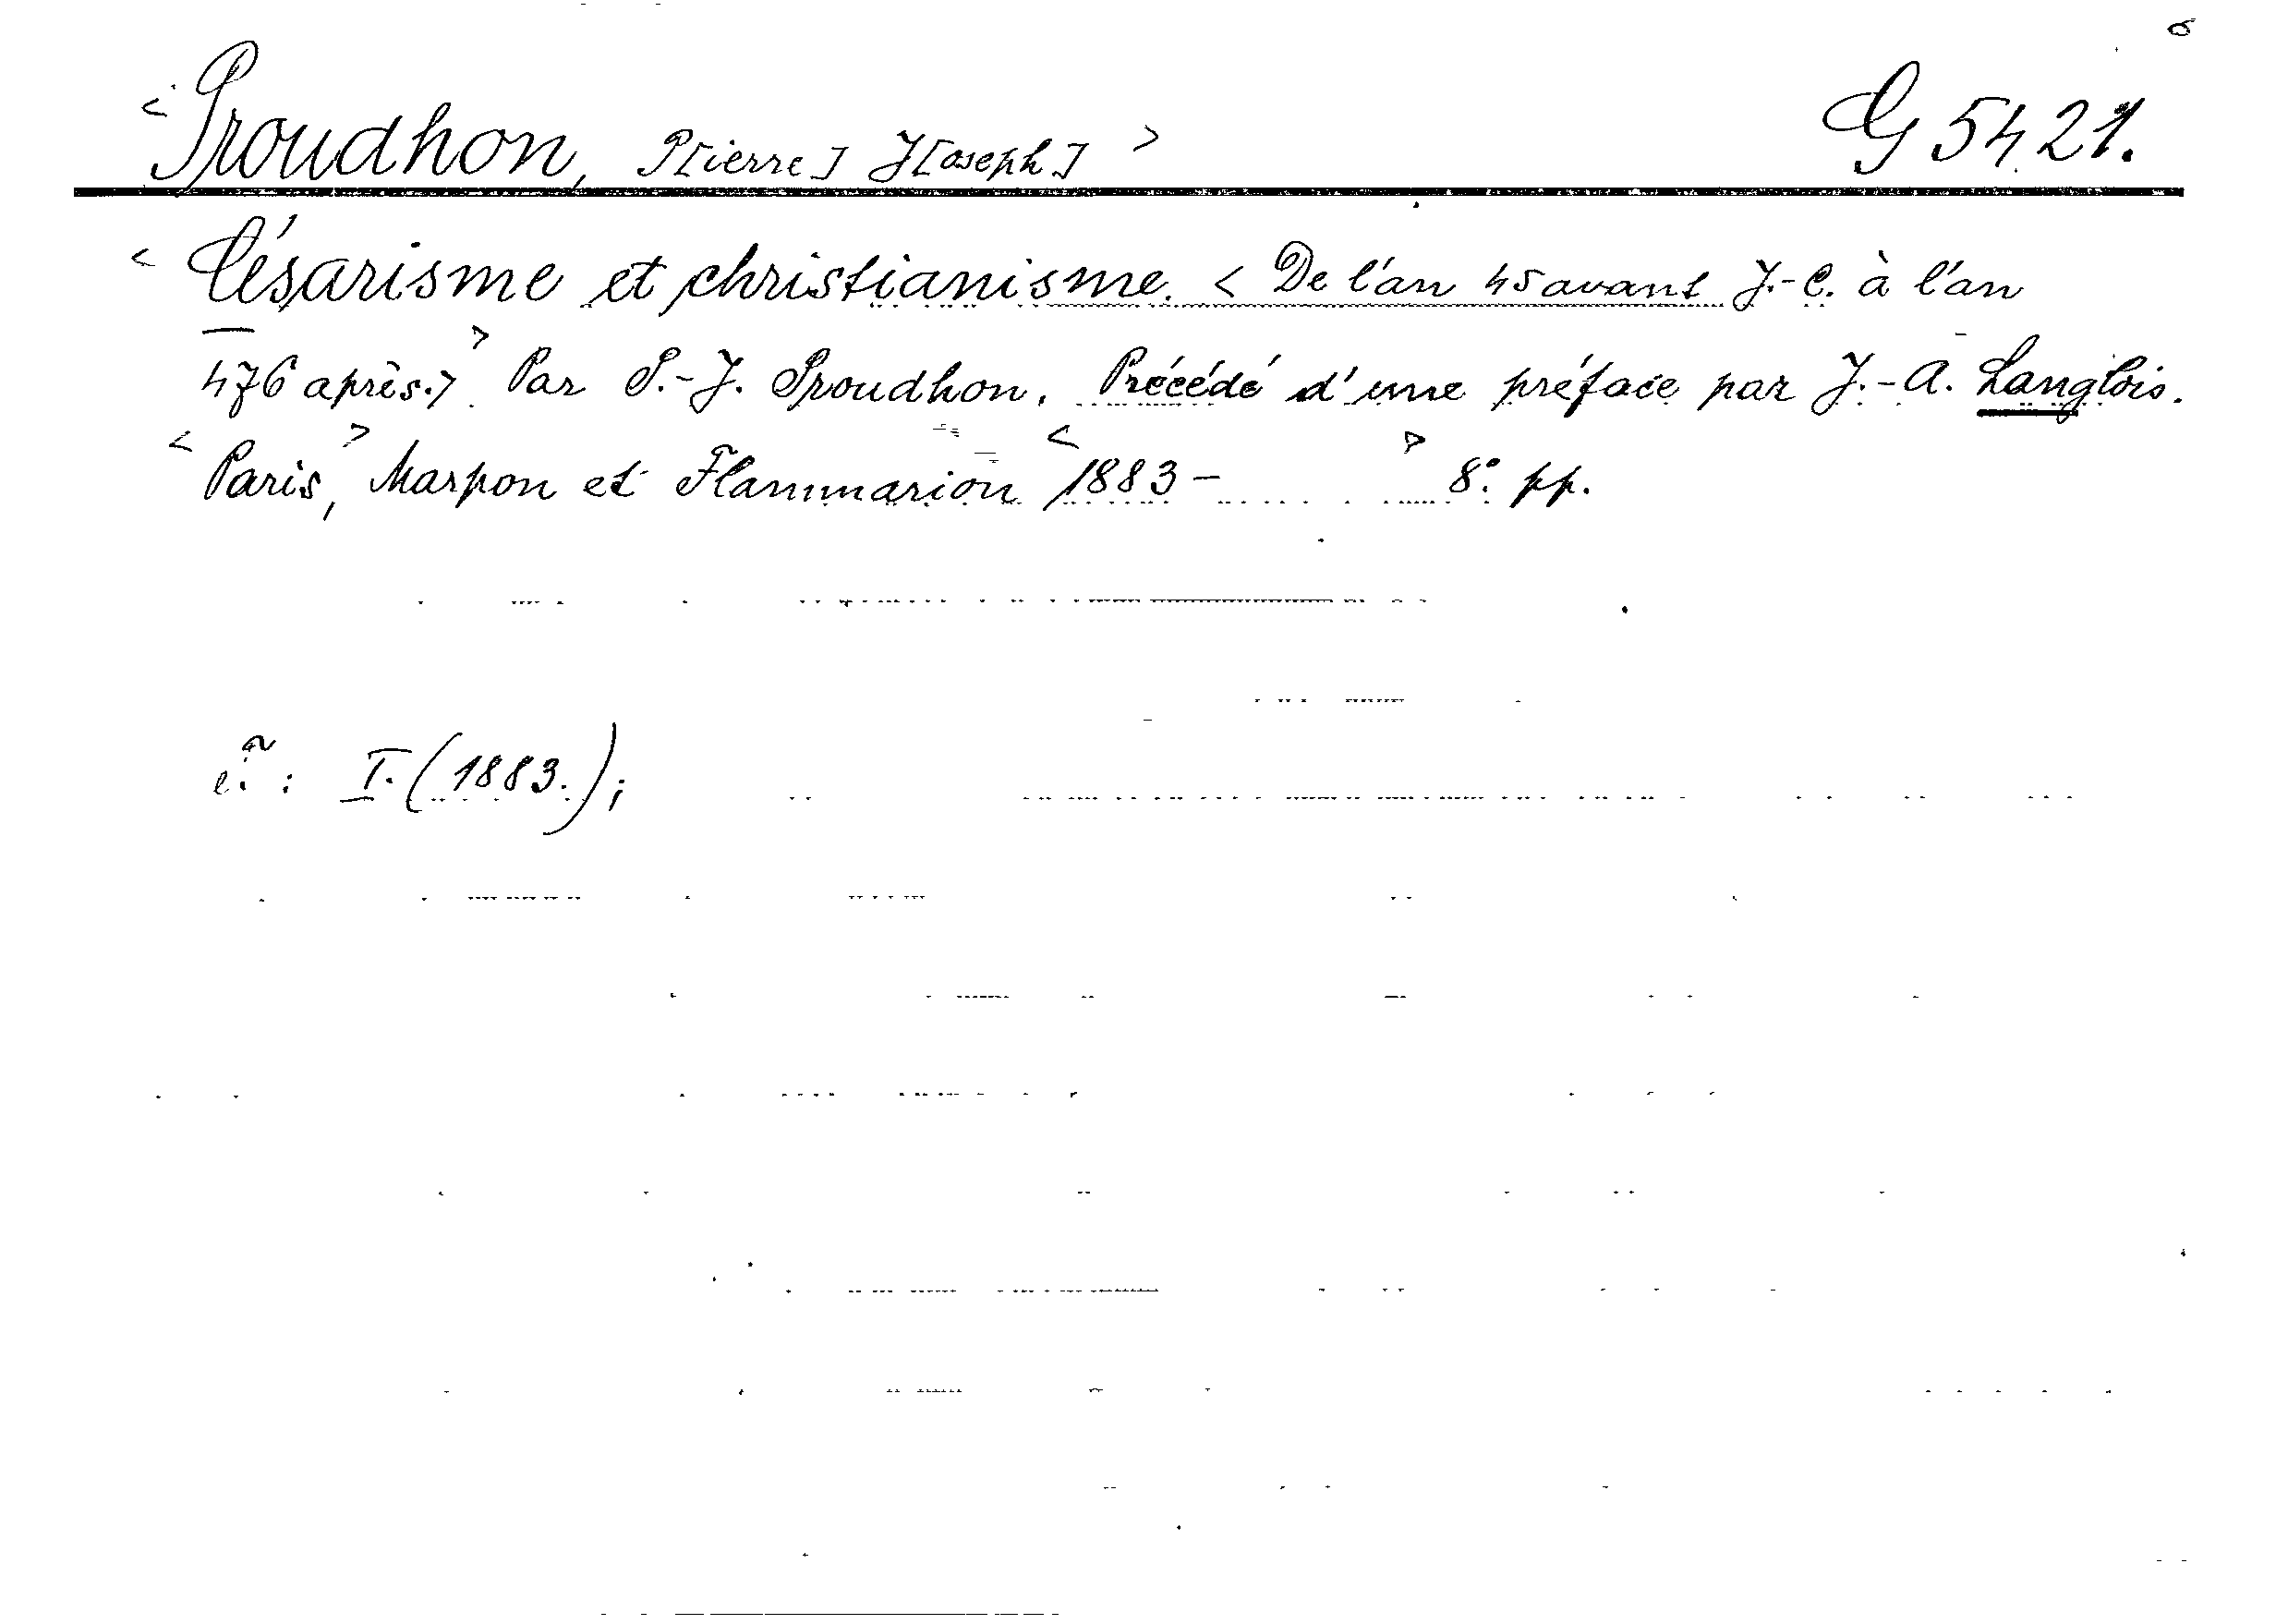 <Proudhon, P[ierre] J[oseph]> G 5421.
<Césarisme et christianisme. <De l'an 45 avant J.-C. à l'an
476 après.>> Par P.-J. Proudhon. Précédé d'une préface par J.-A. Langlois.
<Paris,> Marpon et Flammarion <1883 - > 8° pp.
I. (1883.);